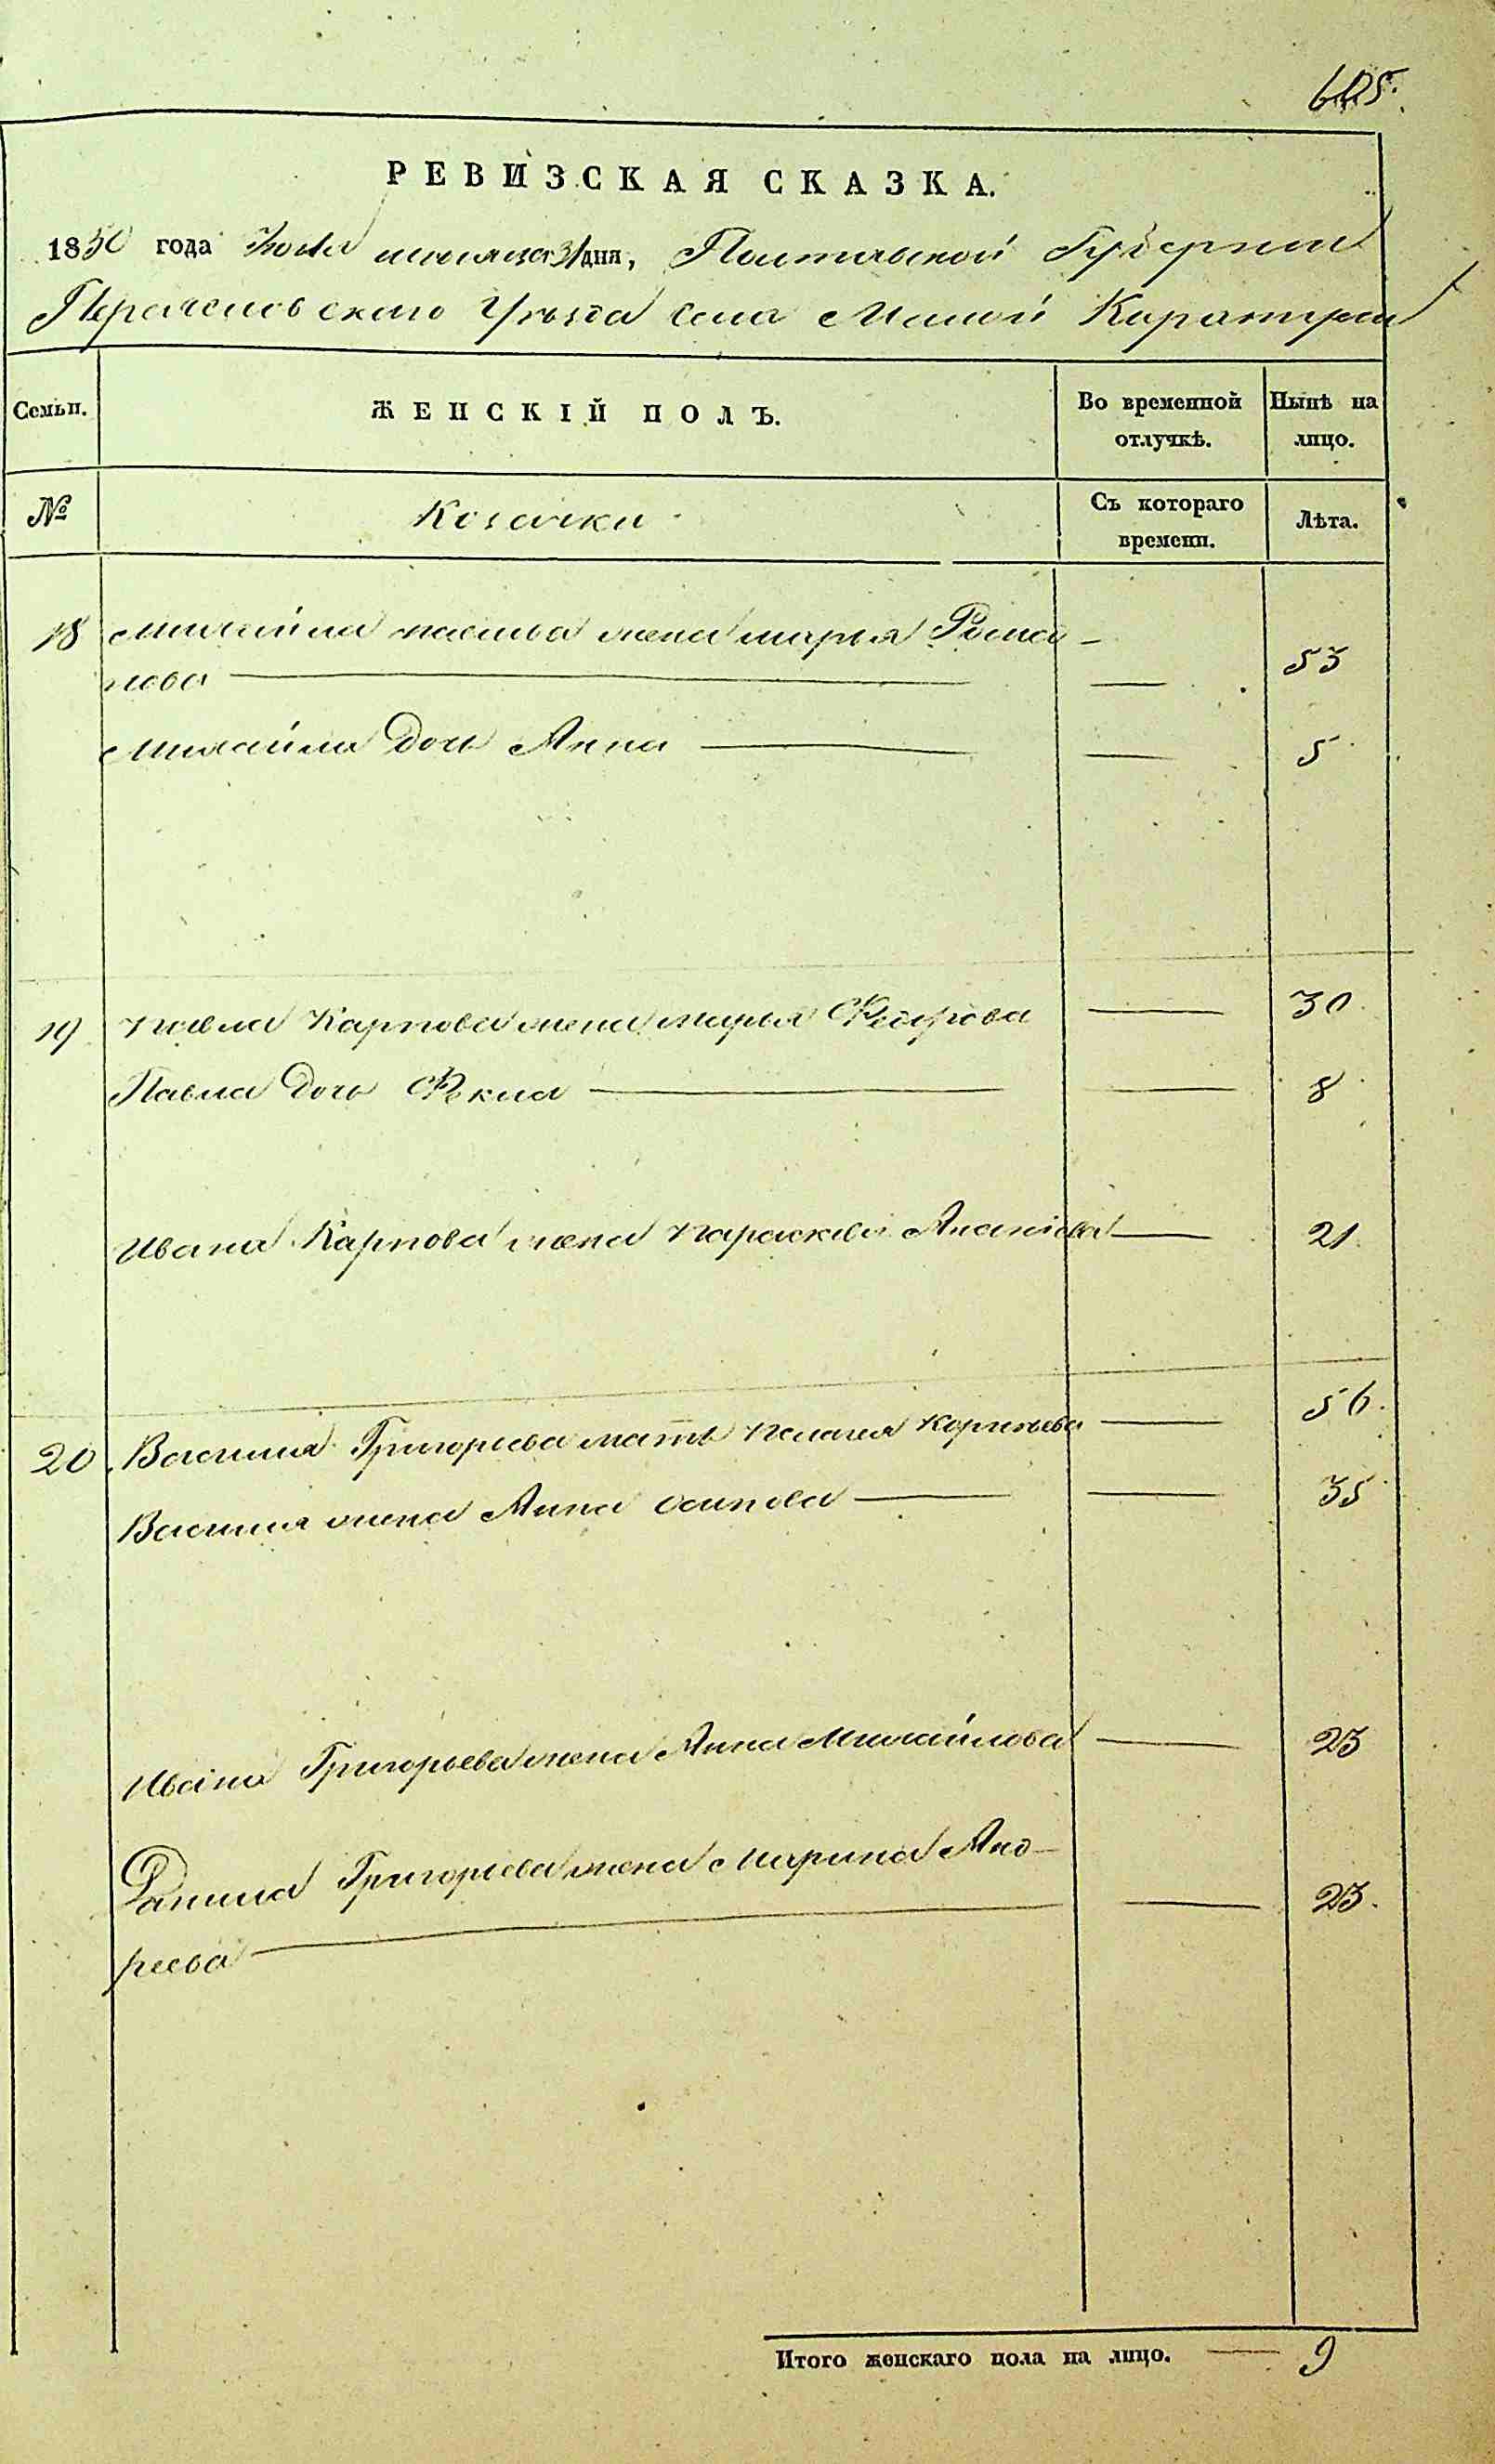 605.
РЕВИЗСКАЯ СКАЗКА.
1850 года Июля месяца 31 дня, Полтавской Губернии
Переяславского Уѣзда Села Малой Каратули
Семьи.
ЖЕНСКІЙ ПОЛЪ.
Во временной отлучкѣ.
Нынѣ на лицо.
№
Козачки
Съ котораго времени.
Лѣта.
18 Михайла жена марья Рома- —
нова — — 53
Михайла дочь Анна — — 5
19 Павла Карпова жена марья Федорова — 30
Павла дочь Фекла — — 8
Ивана Карпова жена параскева Ананіева — 21
20 Василия Григорьева мать пелагея Корнеева — 56.
Василия жена Анна осипова — — 35
Ивана Григорьева жена Анна Михайлова — 23
Данила Григорьева жена Марина Анд-
реева — — 23.
Итого женскаго пола на лицо. — 9